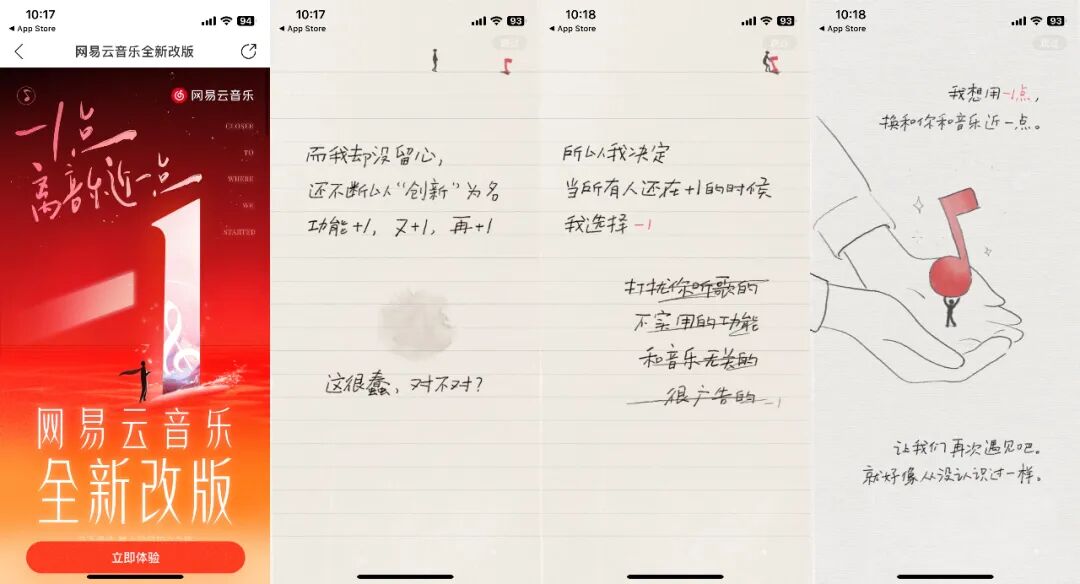 10:17
94
◀ App Store
网易云音乐全新改版
网易云音乐
-1点
离音乐近一点
CLOSER
TO
WHERE
WE
STARTED
-1
网易云音乐
全新改版
立即体验
10:17
93
◀ App Store
跳过
而我却没留心，
还不断以“创新”为名
功能+1，又+1，再+1
这很蠢，对不对？
10:18
93
◀ App Store
跳过
所以我决定
当所有人还在+1的时候
我选择 -1
打扰你听歌的
不实用的功能
和音乐无关的
很广告的 -1
10:18
93
◀ App Store
跳过
我想用-1点，
换和你和音乐近一点。
让我们再次遇见吧。
就好像从没认识过一样。